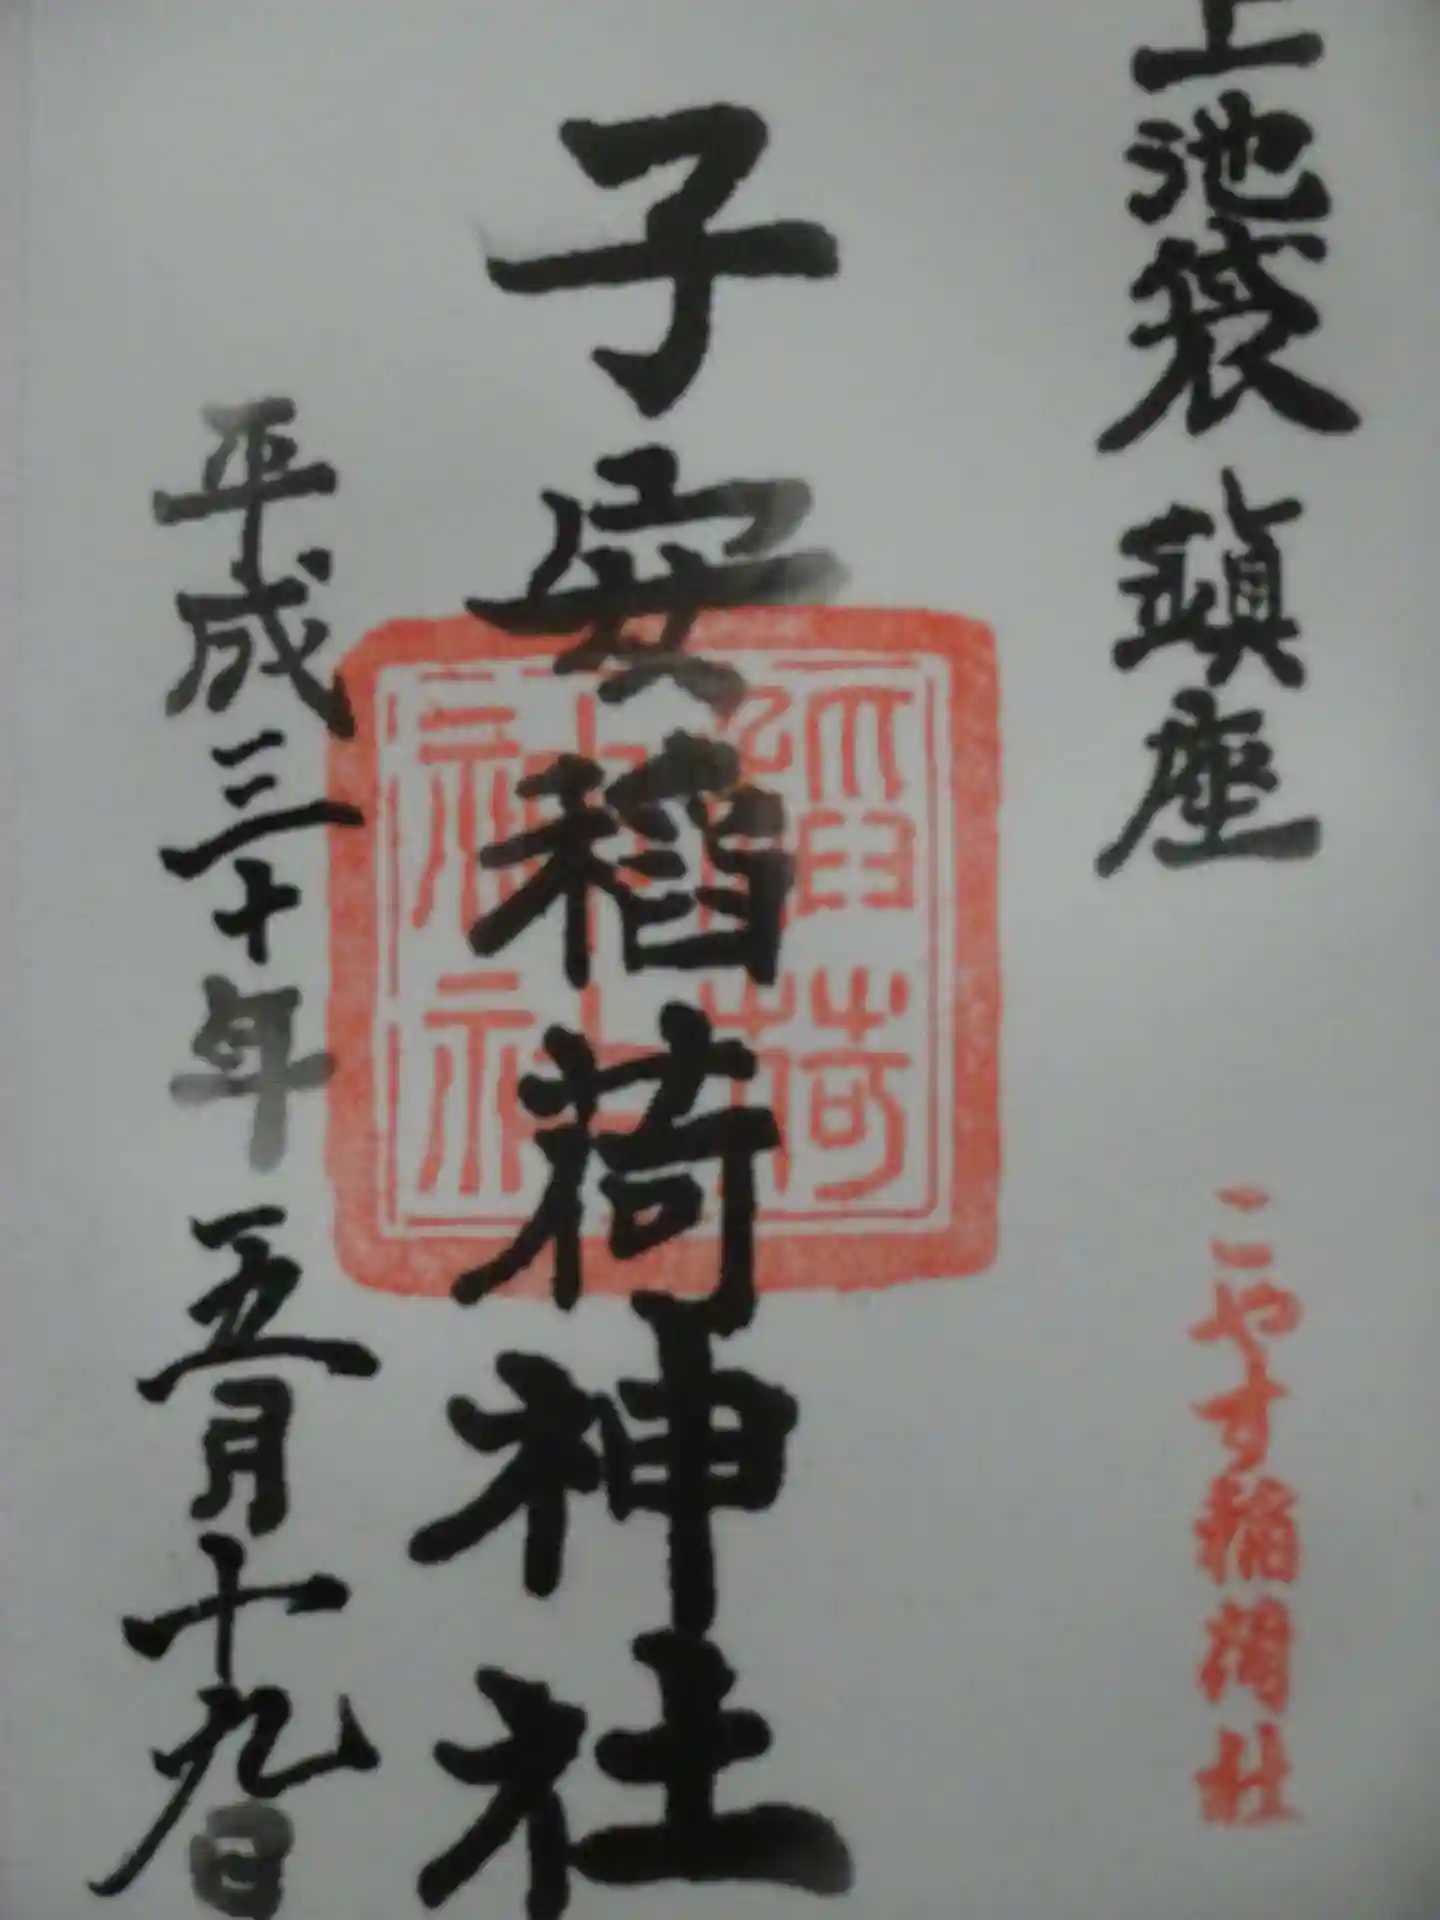 上池袋鎮座
こやす稲荷社
子安稲荷神社
稲荷
神社
平成三十年五月十九日